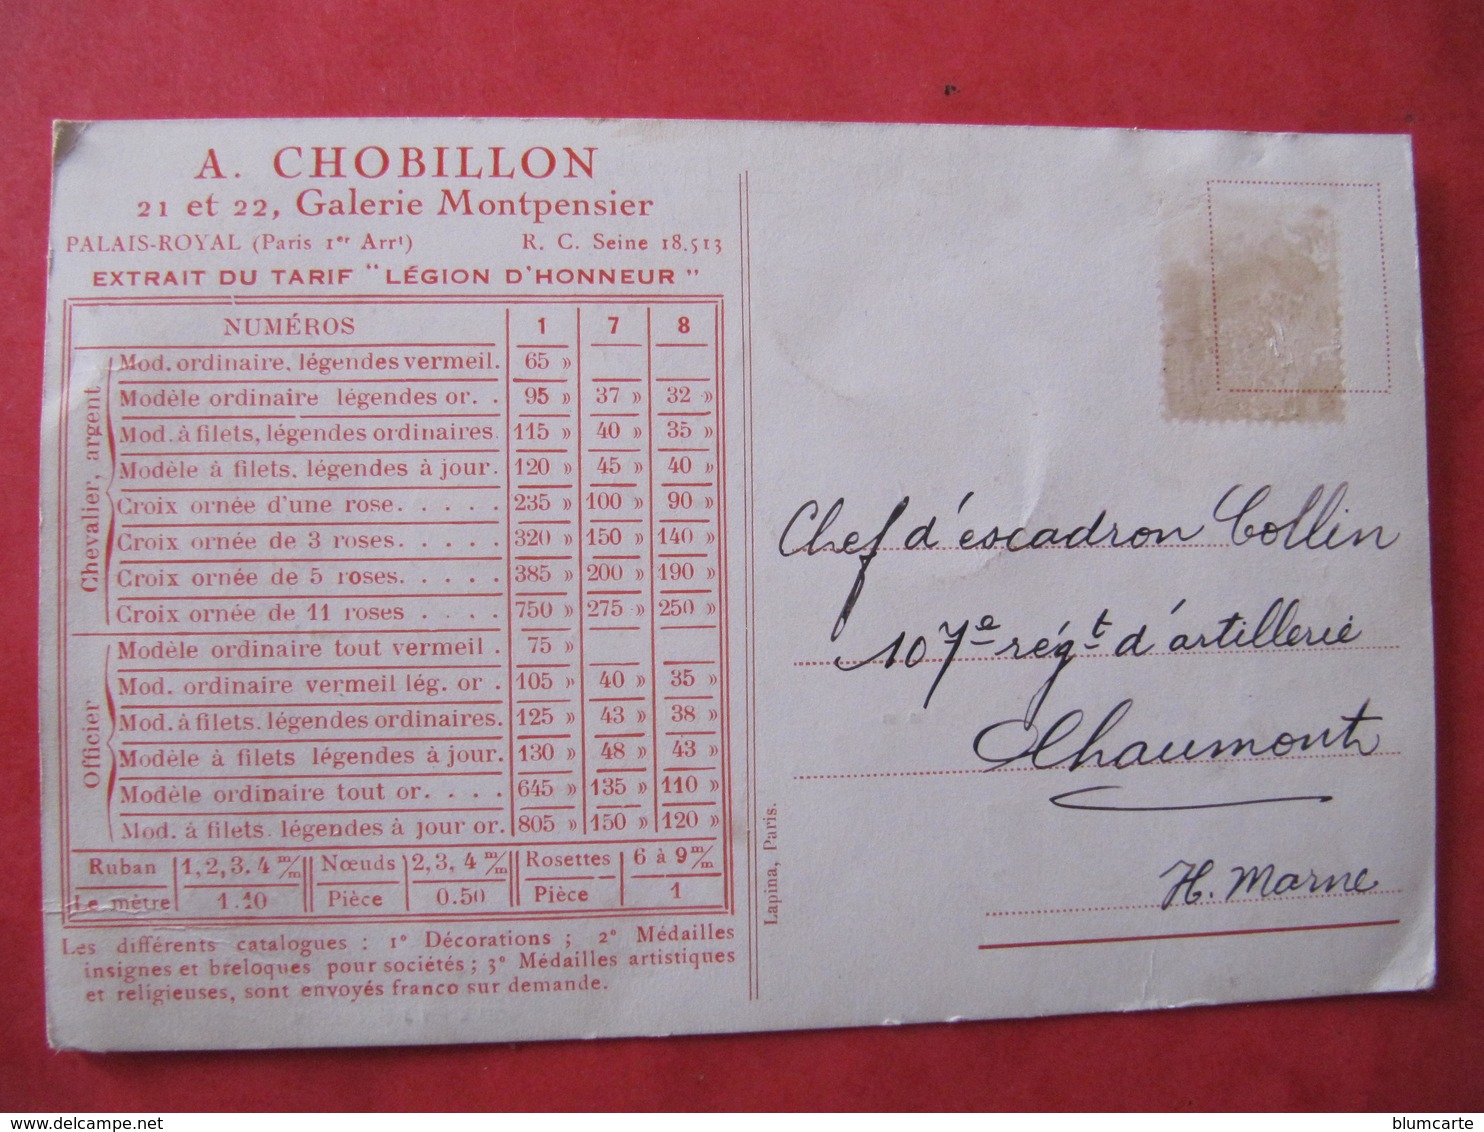 A. CHOBILLON
21 et 22, Galerie Montpensier
PALAIS-ROYAL (Paris 1er Arrt) R. C. Seine 18.513
EXTRAIT DU TARIF "LÉGION D'HONNEUR"
NUMÉROS 1 7 8
Chevalier, argent
Mod. ordinaire, légendes vermeil. 65 »
Modèle ordinaire légendes or. . 95 » 37 » 32 »
Mod. à filets, légendes ordinaires 115 » 40 » 35 »
Modèle à filets, légendes à jour. 120 » 45 » 40 »
Croix ornée d'une rose. . . . . 235 » 100 » 90 »
Croix ornée de 3 roses. . . . . 320 » 150 » 140 »
Croix ornée de 5 roses. . . . . 385 » 200 » 190 »
Croix ornée de 11 roses . . . . 750 » 275 » 250 »
Officier
Modèle ordinaire tout vermeil . 75 »
Mod. ordinaire vermeil lég. or . 105 » 40 » 35 »
Mod. à filets. légendes ordinaires. 125 » 43 » 38 »
Modèle à filets légendes à jour. 130 » 48 » 43 »
Modèle ordinaire tout or. . . . 645 » 135 » 110 »
Mod. à filets. légendes à jour or. 805 » 150 » 120 »
Ruban 1, 2, 3, 4 m/m Nœuds 2, 3, 4 m/m Rosettes 6 à 9 m/m
Le mètre 1.10 Pièce 0.50 Pièce 1
Les différents catalogues : 1° Décorations ; 2° Médailles
insignes et breloques pour sociétés ; 3° Médailles artistiques
et religieuses, sont envoyés franco sur demande.
Lapina, Paris.
Chef d'escadron Collin
107e régt d'artillerie
Chaumont
H. Marne
blumcarte